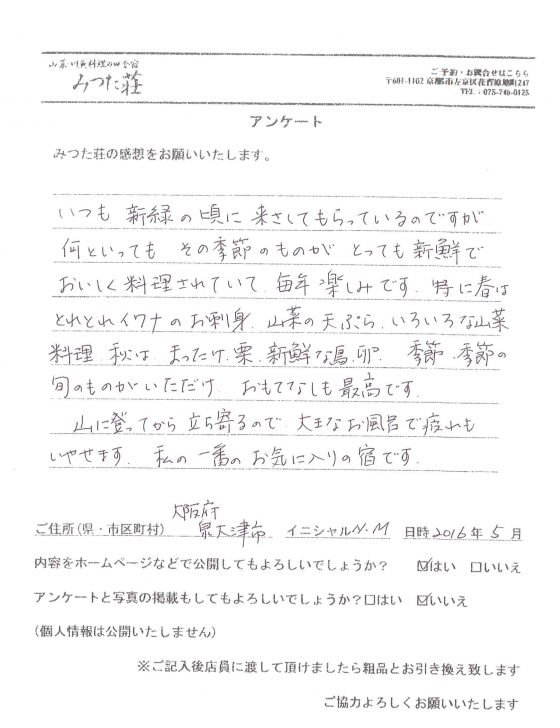 山菜・川魚料理の田舎宿
みつた荘
ご予約・お問合せはこちら
〒601-1102 京都市左京区花脊原地町247
TEL：075-746-0123
アンケート
みつた荘の感想をお願いいたします。
いつも 新緑の頃に 来さしてもらっているのですが
何といっても その季節のものが とっても新鮮で
おいしく料理されていて、毎年 楽しみです。特に春は
とれとれイワナのお刺身、山菜の天ぷら、いろいろな山菜
料理、秋は、まったけ、栗、新鮮な鳥、卵、季節、季節の
旬のものがいただけ おもてなしも最高です。
山に登ってから 立ち寄るので 大きなお風呂で疲れも
いやせます。 私の一番のお気に入りの宿です。
ご住所(県・市区町村) 大阪府 泉大津市 イニシャルN.M 日時2016年5月
内容をホームページなどで公開してもよろしいでしょうか？ ☑はい □いいえ
アンケートと写真の掲載もしてもよろしいでしょうか？□はい ☑いいえ
(個人情報は公開いたしません)
※ご記入後店員に渡して頂けましたら粗品とお引き換え致します
ご協力よろしくお願いいたします